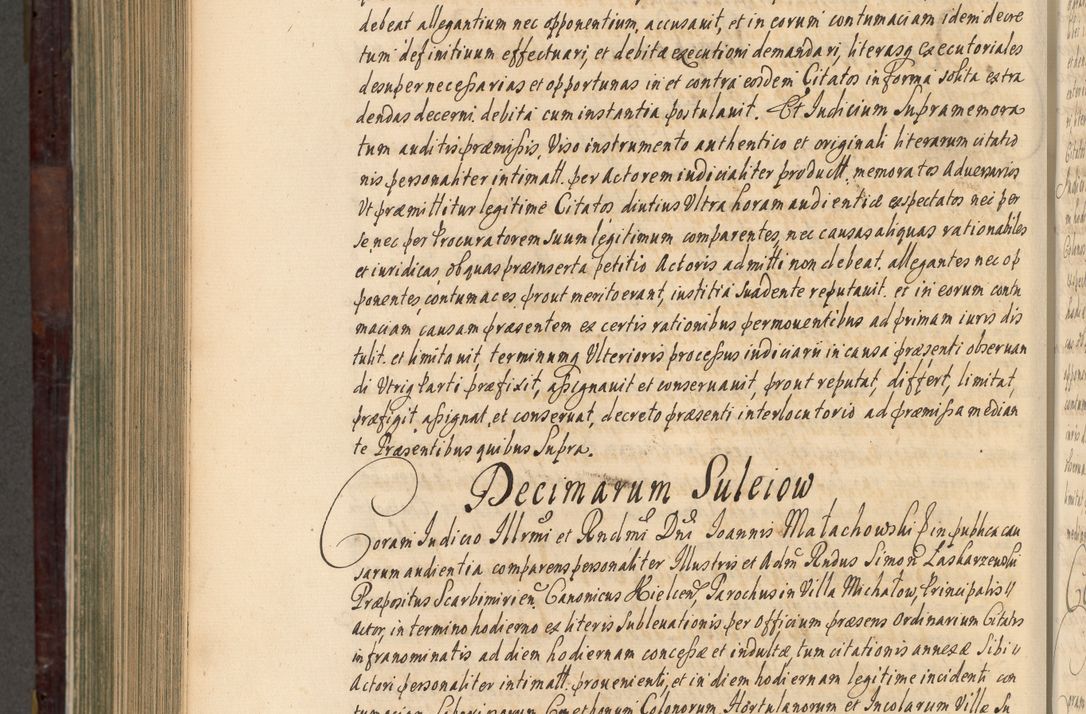 debeat allegantium nec opponentium, accusauit, et in eorum contumaciam idem decre
tum definitiuum effectuari, et debitæ executioni demandari, literasq executoriales
desuper necessarias et opportunas in et contra eosdem Citatos in forma solita extra
dendas decerni. debita cum instantia postulauit. Et Iudicium supra memora
tum auditis præmissis, Viso instrumento authentico et originali literarum citatio
nis personaliter intimatt. per Actorem iudicialiter productt. memoratos Aduersarios
Ut præmittitur legitime Citatos diutius Ultra horam audientiæ expectatos nec per
se nec per Procuratorem suum legitimum comparentes, nec causas aliquas rationabiles
et iuridicas, ob quas præinserta petitio Actoris admitti non debeat. allegantes nec op
ponentes, contumaces, prout merito erant, iustitia suadente reputauit. et in eorum contu
maciam, causam præsentem ex certis rationibus permouentibus ad primam iuris dis
tulit. et limitauit, terminumq Ulterioris processus iudiciarii in causa præsenti obseruan
di Utriq Parti præfixit, assignauit et conseruauit, prout reputat, differt, limitat,
præfigit, assignat, et conseruat, decreto præsenti interlocutorio ad præmissa median
te Præsentibus quibus supra.
Decimarum Suleiow
Coram Iudicio Illrmi et Rndmi Dni Ioannis Małachowski in publica cau
sarum audientia comparens personaliter Illustris et Adm Rndus Simon Laskarzewski
Præpositus Scarbimirien Canonicus Kielcen, Parochus in Villa Michałow, Principalis
Actor, in termino hodierno ex literis subleuationis per Officium præsens Ordinarium Citatis
infranominatis ad diem hodiernam concessæ et indultæ, tum citationis annexæ sibi
Actori personaliter intimatt. prouenienti, et in diem hodiernam legitime incidenti con
tumaciam Laboriosorum Cmethonum Colonorum Hortulanorum et Incolarum Villæ Su